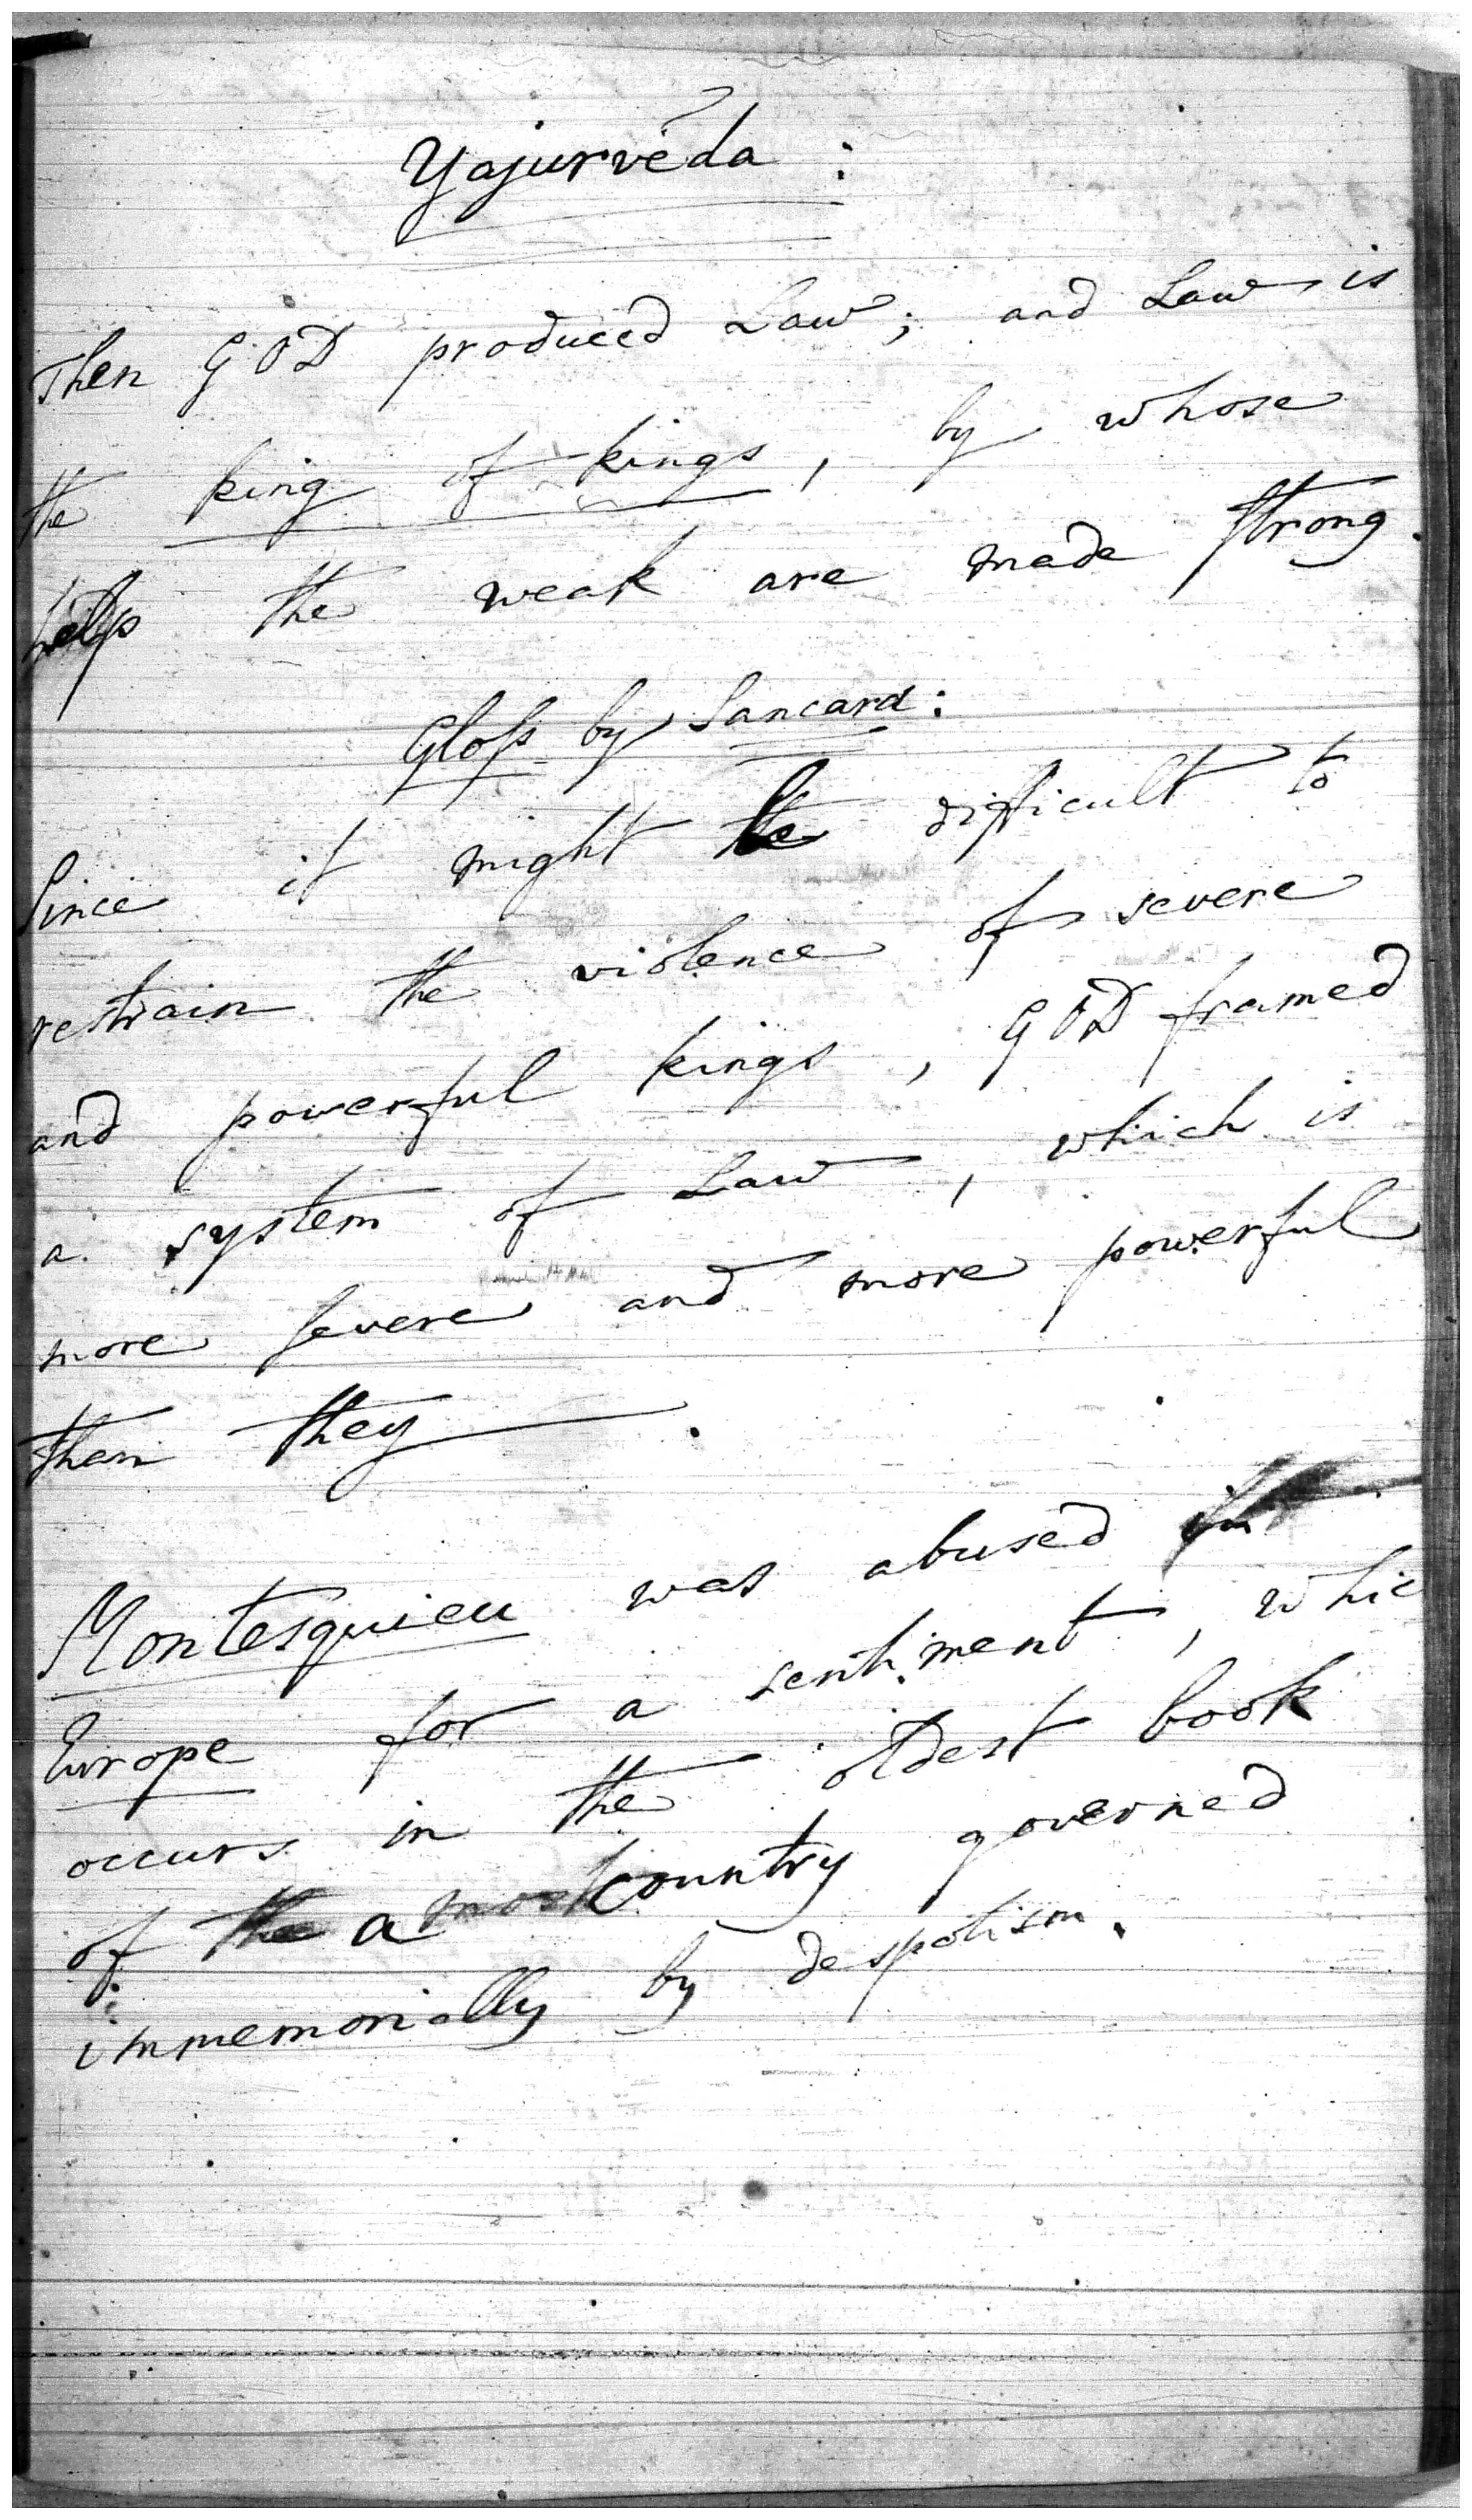 Yajurvēda :
Then GOD produced Law; and Law is
the king of kings, by whose
help the weak are made strong.
Gloſs by Sancara:
Since it might be difficult to
restrain the violence of severe
and powerful kings, GOD framed
a system of Law, which is
more severe and more powerful
than they.
Montesquieu was abused in
Europe for a sentiment, whic
occurs in the oldest book
of the a most country governed
immemorially by despotism.